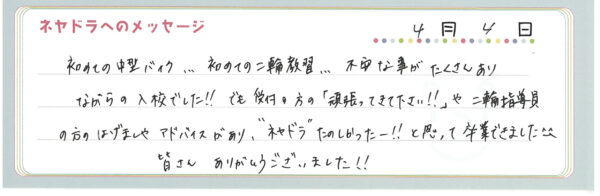 ネヤドラへのメッセージ
4月4日
初めての中型バイク… 初めての二輪教習… 不安な事がたくさんあり
ながらの入校でした!! でも受付の方の「頑張ってきて下さい!!」や二輪指導員
の方のはげましやアドバイスがあり、"ネヤドラ"たのしかったー!!と思って卒業できました^^
皆さんありがとうございました!!